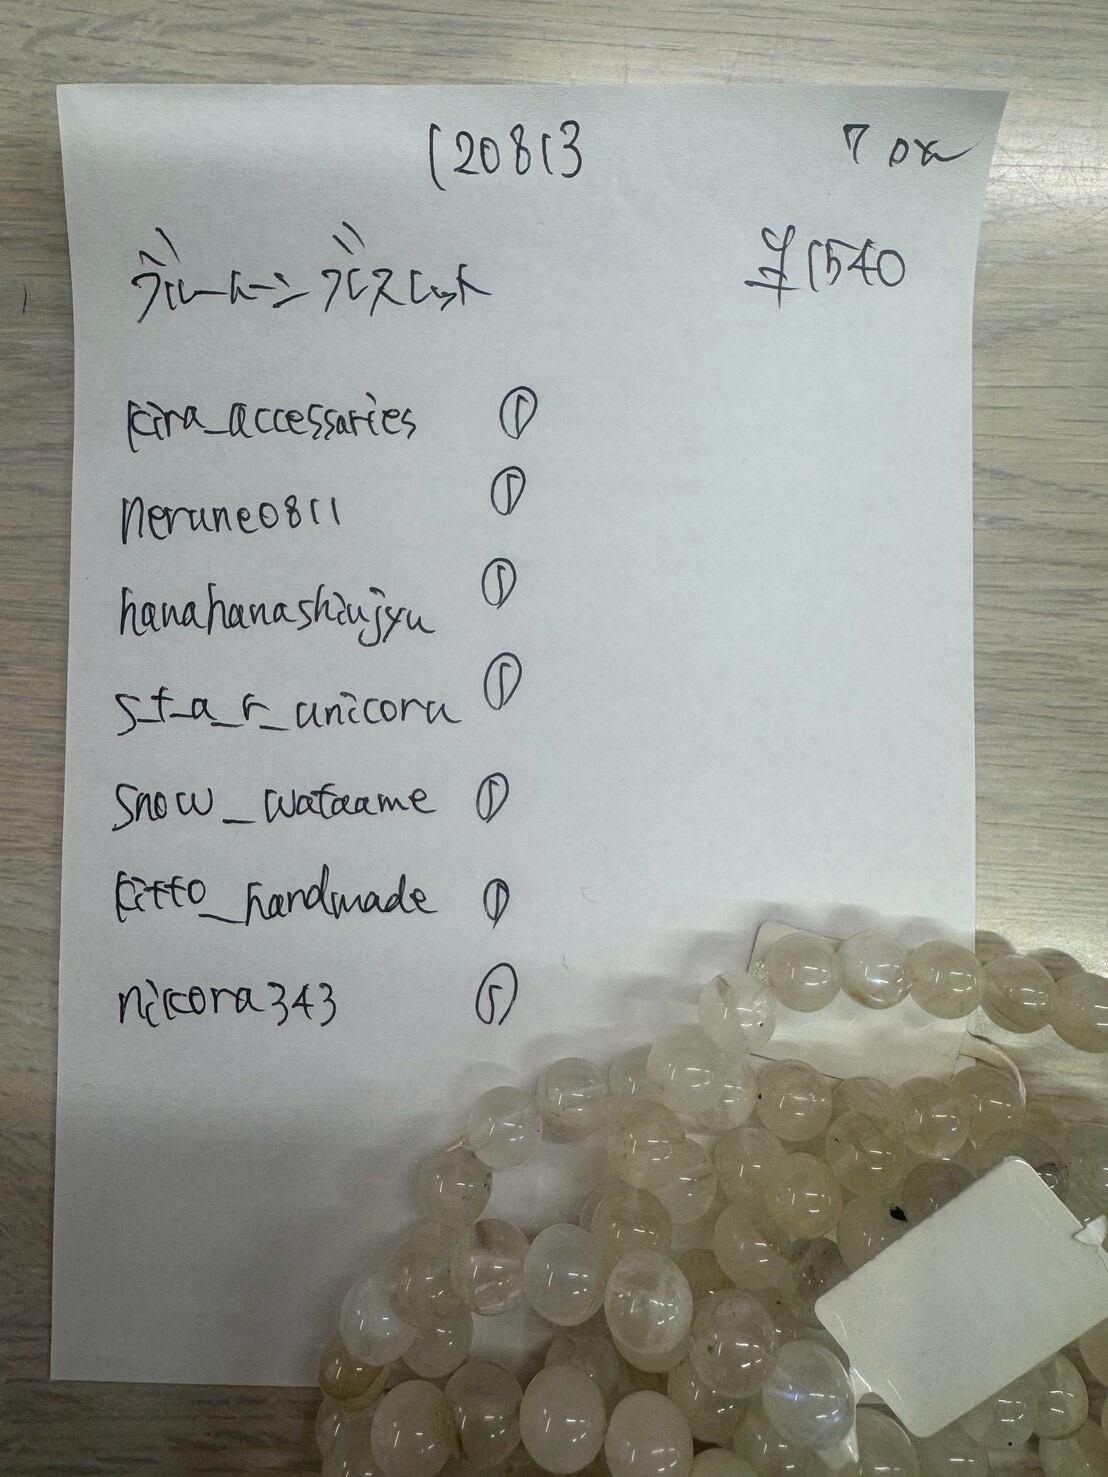 120813 7
ブルームーン ブレスレット ¥1540
kira_accessories ①
nerune0811 ①
hanahanashinjyu ①
s_t_a_r_unicorn ①
snow_wataame ①
kitto_handmade ①
nicora343 ①